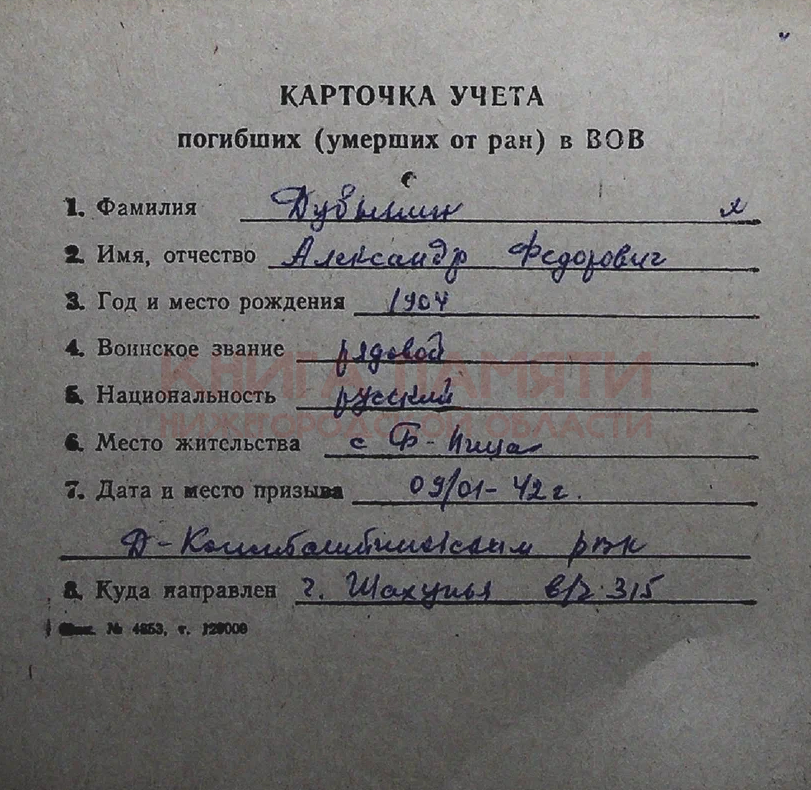 КАРТОЧКА УЧЕТА
погибших (умерших от ран) в ВОВ
1. Фамилия
2. Имя, отчество Александр Федорович
3. Год и место рождения 1904
4. Воинское звание рядовой
КНИГА ПАМЯТИ
5. Национальность русский
НИЖЕГОРОДСКОЙ ОБЛАСТИ
6. Место жительства с
7. Дата и место призыва 09/01-42 г.
рвк
8. Куда направлен г. Шахунья в/ч 315
№ 4853, т.